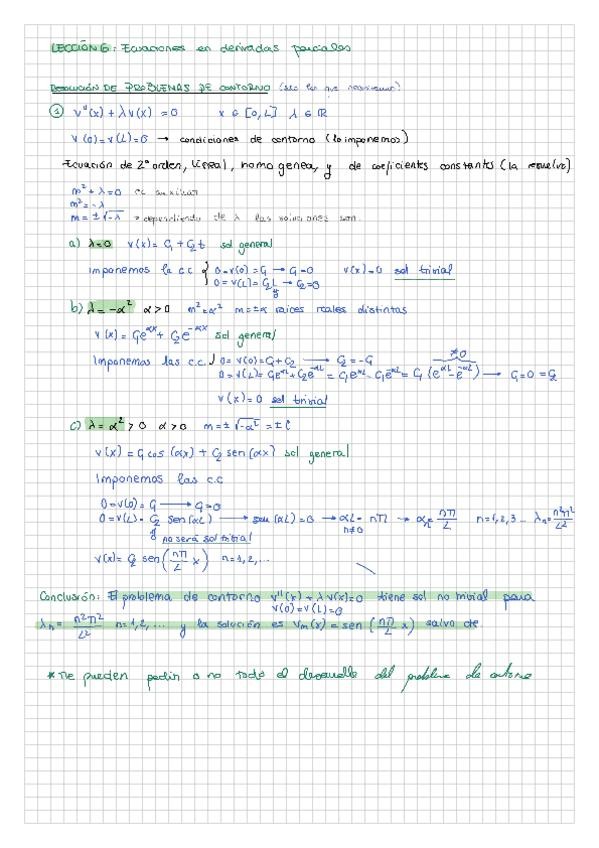 LECCIÓN 6: Ecuaciones en derivadas parciales
RESOLUCIÓN DE PROBLEMAS DE CONTORNO
① v''(x) + λv(x) = 0 x ∈ [0,L] λ ∈ ℝ
v(0) = v(L) = 0 → condiciones de contorno (lo imponemos)
Ecuación de 2º orden, lineal, homogenea, y de coeficientes constantes (la resuelvo)
m² + λ = 0 ec auxiliar
m² = -λ
m = ±√-λ → dependiendo de λ las soluciones son:
a) λ=0 v(x) = C₁ + C₂t sol general
imponemos la c.c { 0=v(0)=C₁ → C₁=0 v(x)=0 sol trivial
0=v(L)=C₂L → C₂=0
b) λ=-α² α>0 m²=α² m=±α raíces reales distintas
v(x) = C₁e^αx + C₂e^-αx sol general
Imponemos las c.c. { 0=v(0)=C₁+C₂ → C₂=-C₁ ≠0
0=v(L)=C₁e^αL + C₂e^-αL = C₁e^αL - C₁e^-αL = C₁(e^αL - e^-αL) → C₁=0=C₂
v(x)=0 sol trivial
c) λ=α²>0 α>0 m=±√-α² = ± i
v(x) = C₁cos(αx) + C₂ sen(αx) sol general
Imponemos las c.c
0=v(0)=C₁ → C₁=0
0=v(L)= C₂ sen(αL) → sen(αL)=0 → αL=nπ → αn=nπ/L n=1,2,3... λn=n²π²/L²
no será sol trivial n≠0
v(x)= C₂ sen(nπ/L x) n=1,2,...
Conclusión: El problema de contorno v''(x)+λv(x)=0 tiene sol no trivial para
v(0)=v(L)=0
λn = n²π²/L² n=1,2,... y la solución es vn(x)=sen(nπ/L x) salvo de
*Me pueden pedir o no todo el desarrollo del problema de contorno